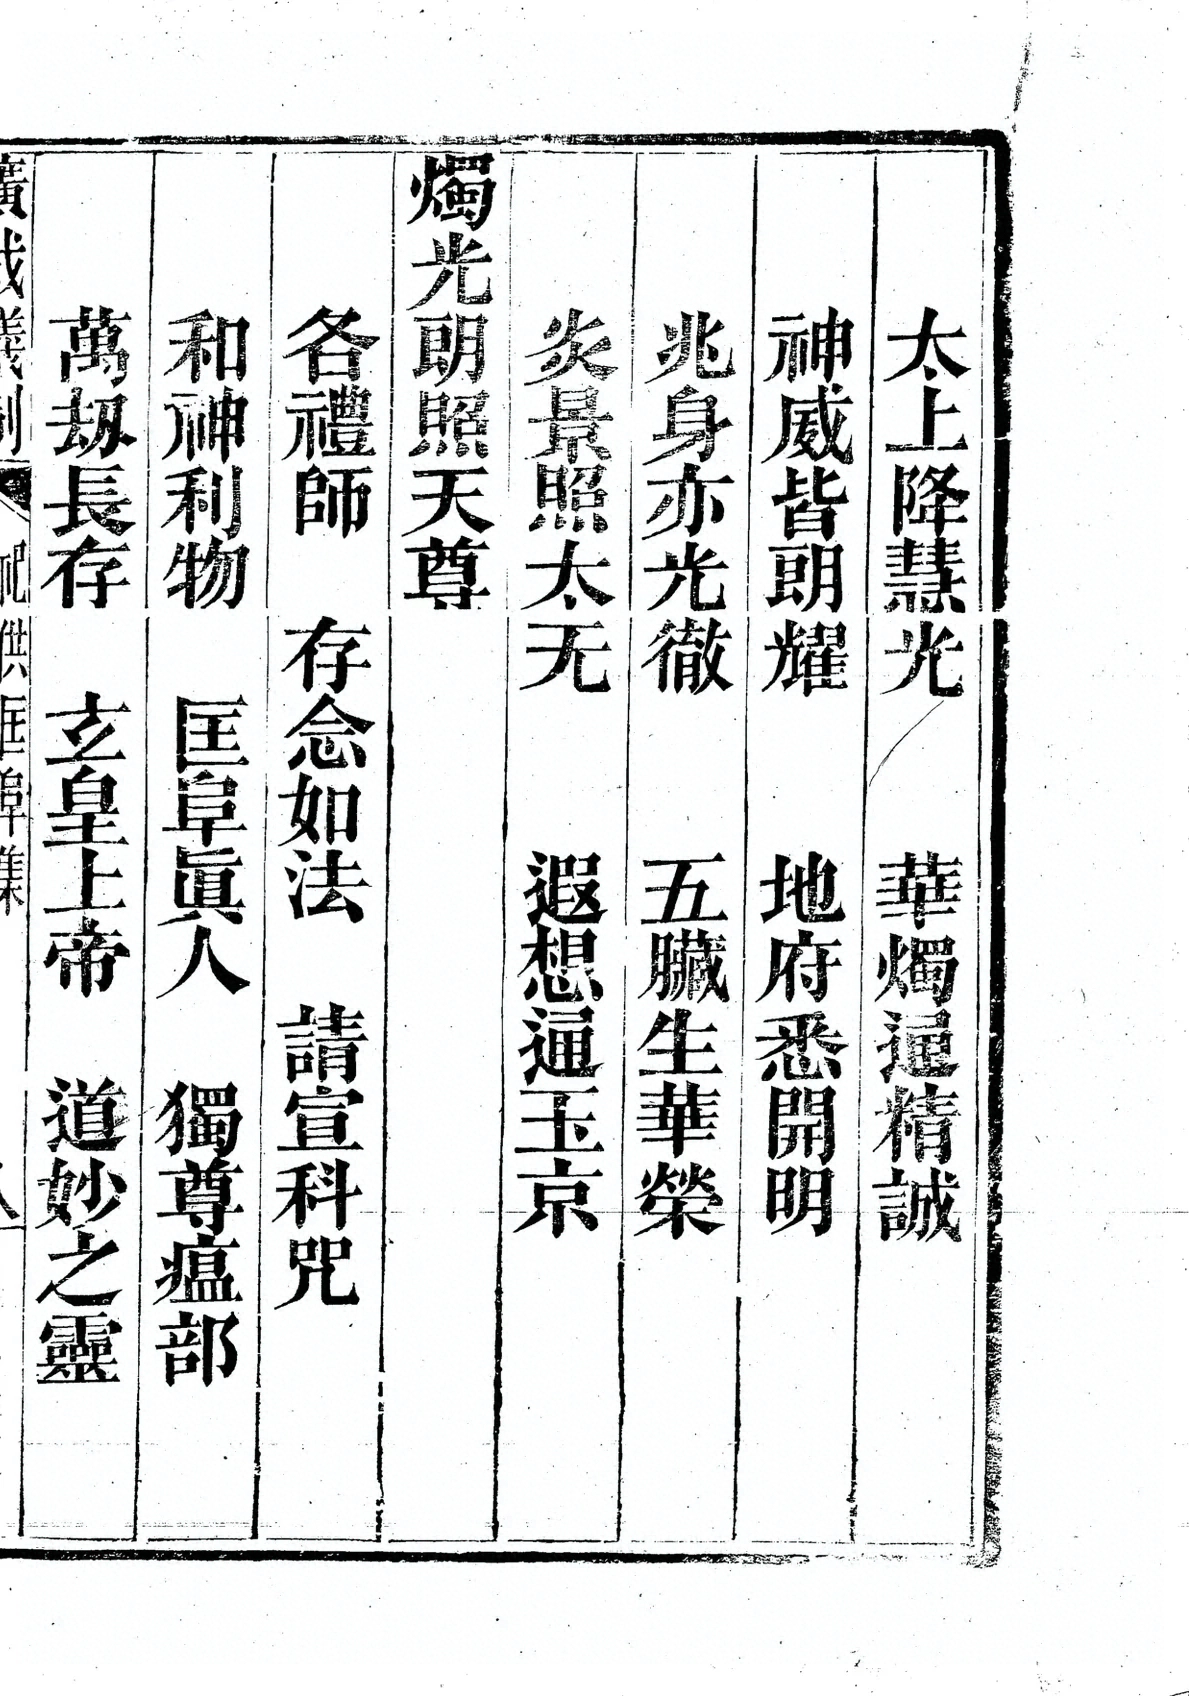 太上降慧光　華燭通精誠
神威皆朗耀　地府悉開明
兆身亦光徹　五臟生華榮
炎景照太无　遐想逼玉京
燭光朗照天尊
各禮師　存念如法　請宣科咒
和神利物　匡阜眞人　獨尊瘟部
萬刼長存　玄皇上帝　道妙之靈
廣成儀制　祀供匡阜集　八